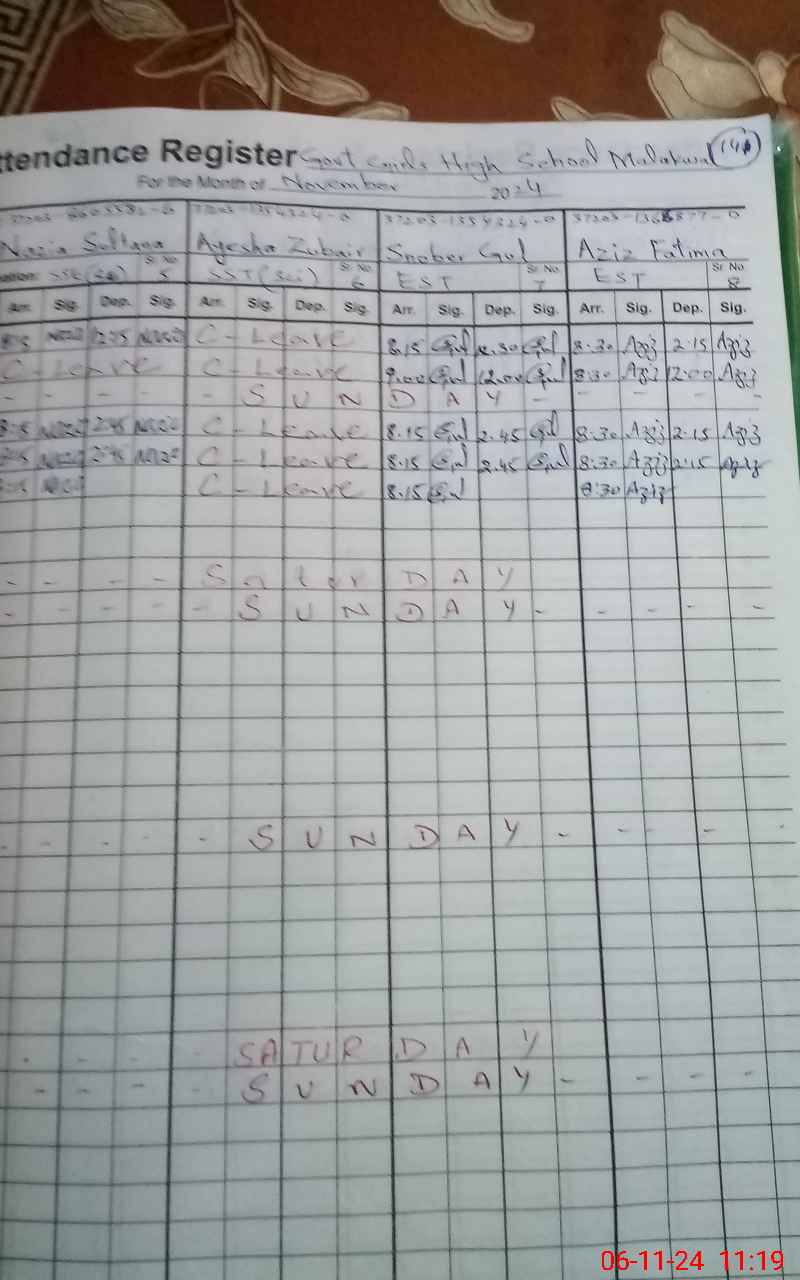 ttendance Register Govt Girls High School Malakwal (14)
For the Month of November 2024
37203-1354324-0 37203-1354324-0
Nazia Sultana Ayesha Zubair Snober Gul Aziz Fatima
Sr. No Sr. No Sr No Sr No
5 SST (Sci) 6 EST 7 EST 8
Arr. Sig. Dep. Sig. Arr. Sig. Dep. Sig. Arr. Sig. Dep. Sig. Arr. Sig. Dep. Sig.
C - Leave 8.15 Gul 12.30 Gul 8:30 Aziz 2:15 Aziz
C - Leave C - Leave 9.00 Gul 12.00 Gul 8:30 Aziz 12:00 Aziz
- - - - - S U N D A Y - - - - -
2:45 C - Leave 8.15 Gul 2.45 Gul 8:30 Aziz 2:15 Aziz
2:45 C - Leave 8.15 Gul 2.45 Gul 8:30 Aziz 2:15 Aziz
C - Leave 8.15 Gul 8:30 Aziz
- - - - S a t u r D A Y
- - - - - S U N D A Y - - - - -
- - - - - S U N D A Y - - - -
- - - - SATUR D A Y
- - - - - S U N D A Y - - - -
06-11-24 11:19